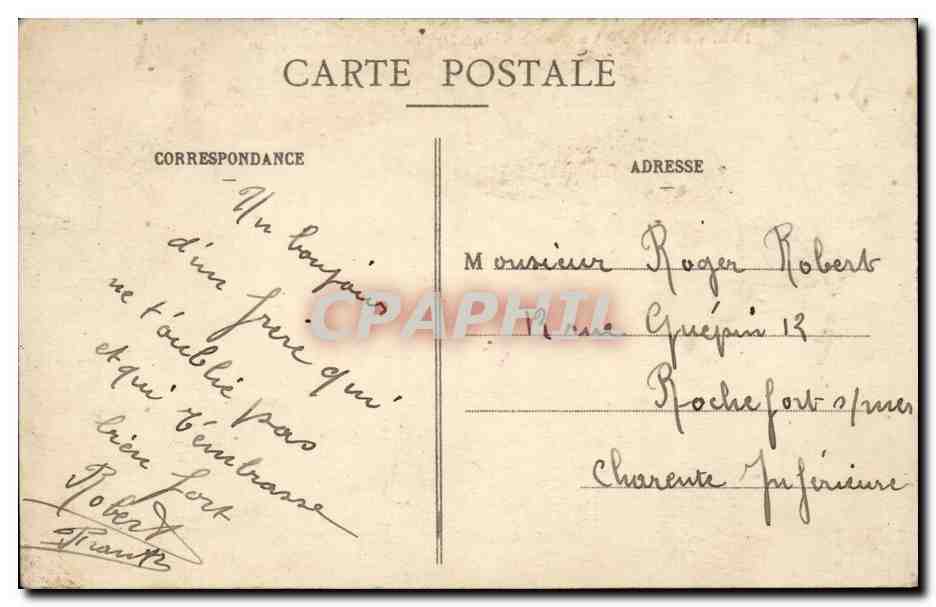 CARTE POSTALE
CORRESPONDANCE
Un bonjour
d'un frere qui
ne t'oublie pas
et qui t'embrasse
bien fort
Robert
ADRESSE
Monsieur Roger Robert
Rue Guépin 12
Rochefort s/mer
Charente Inférieure
CPAPHIL